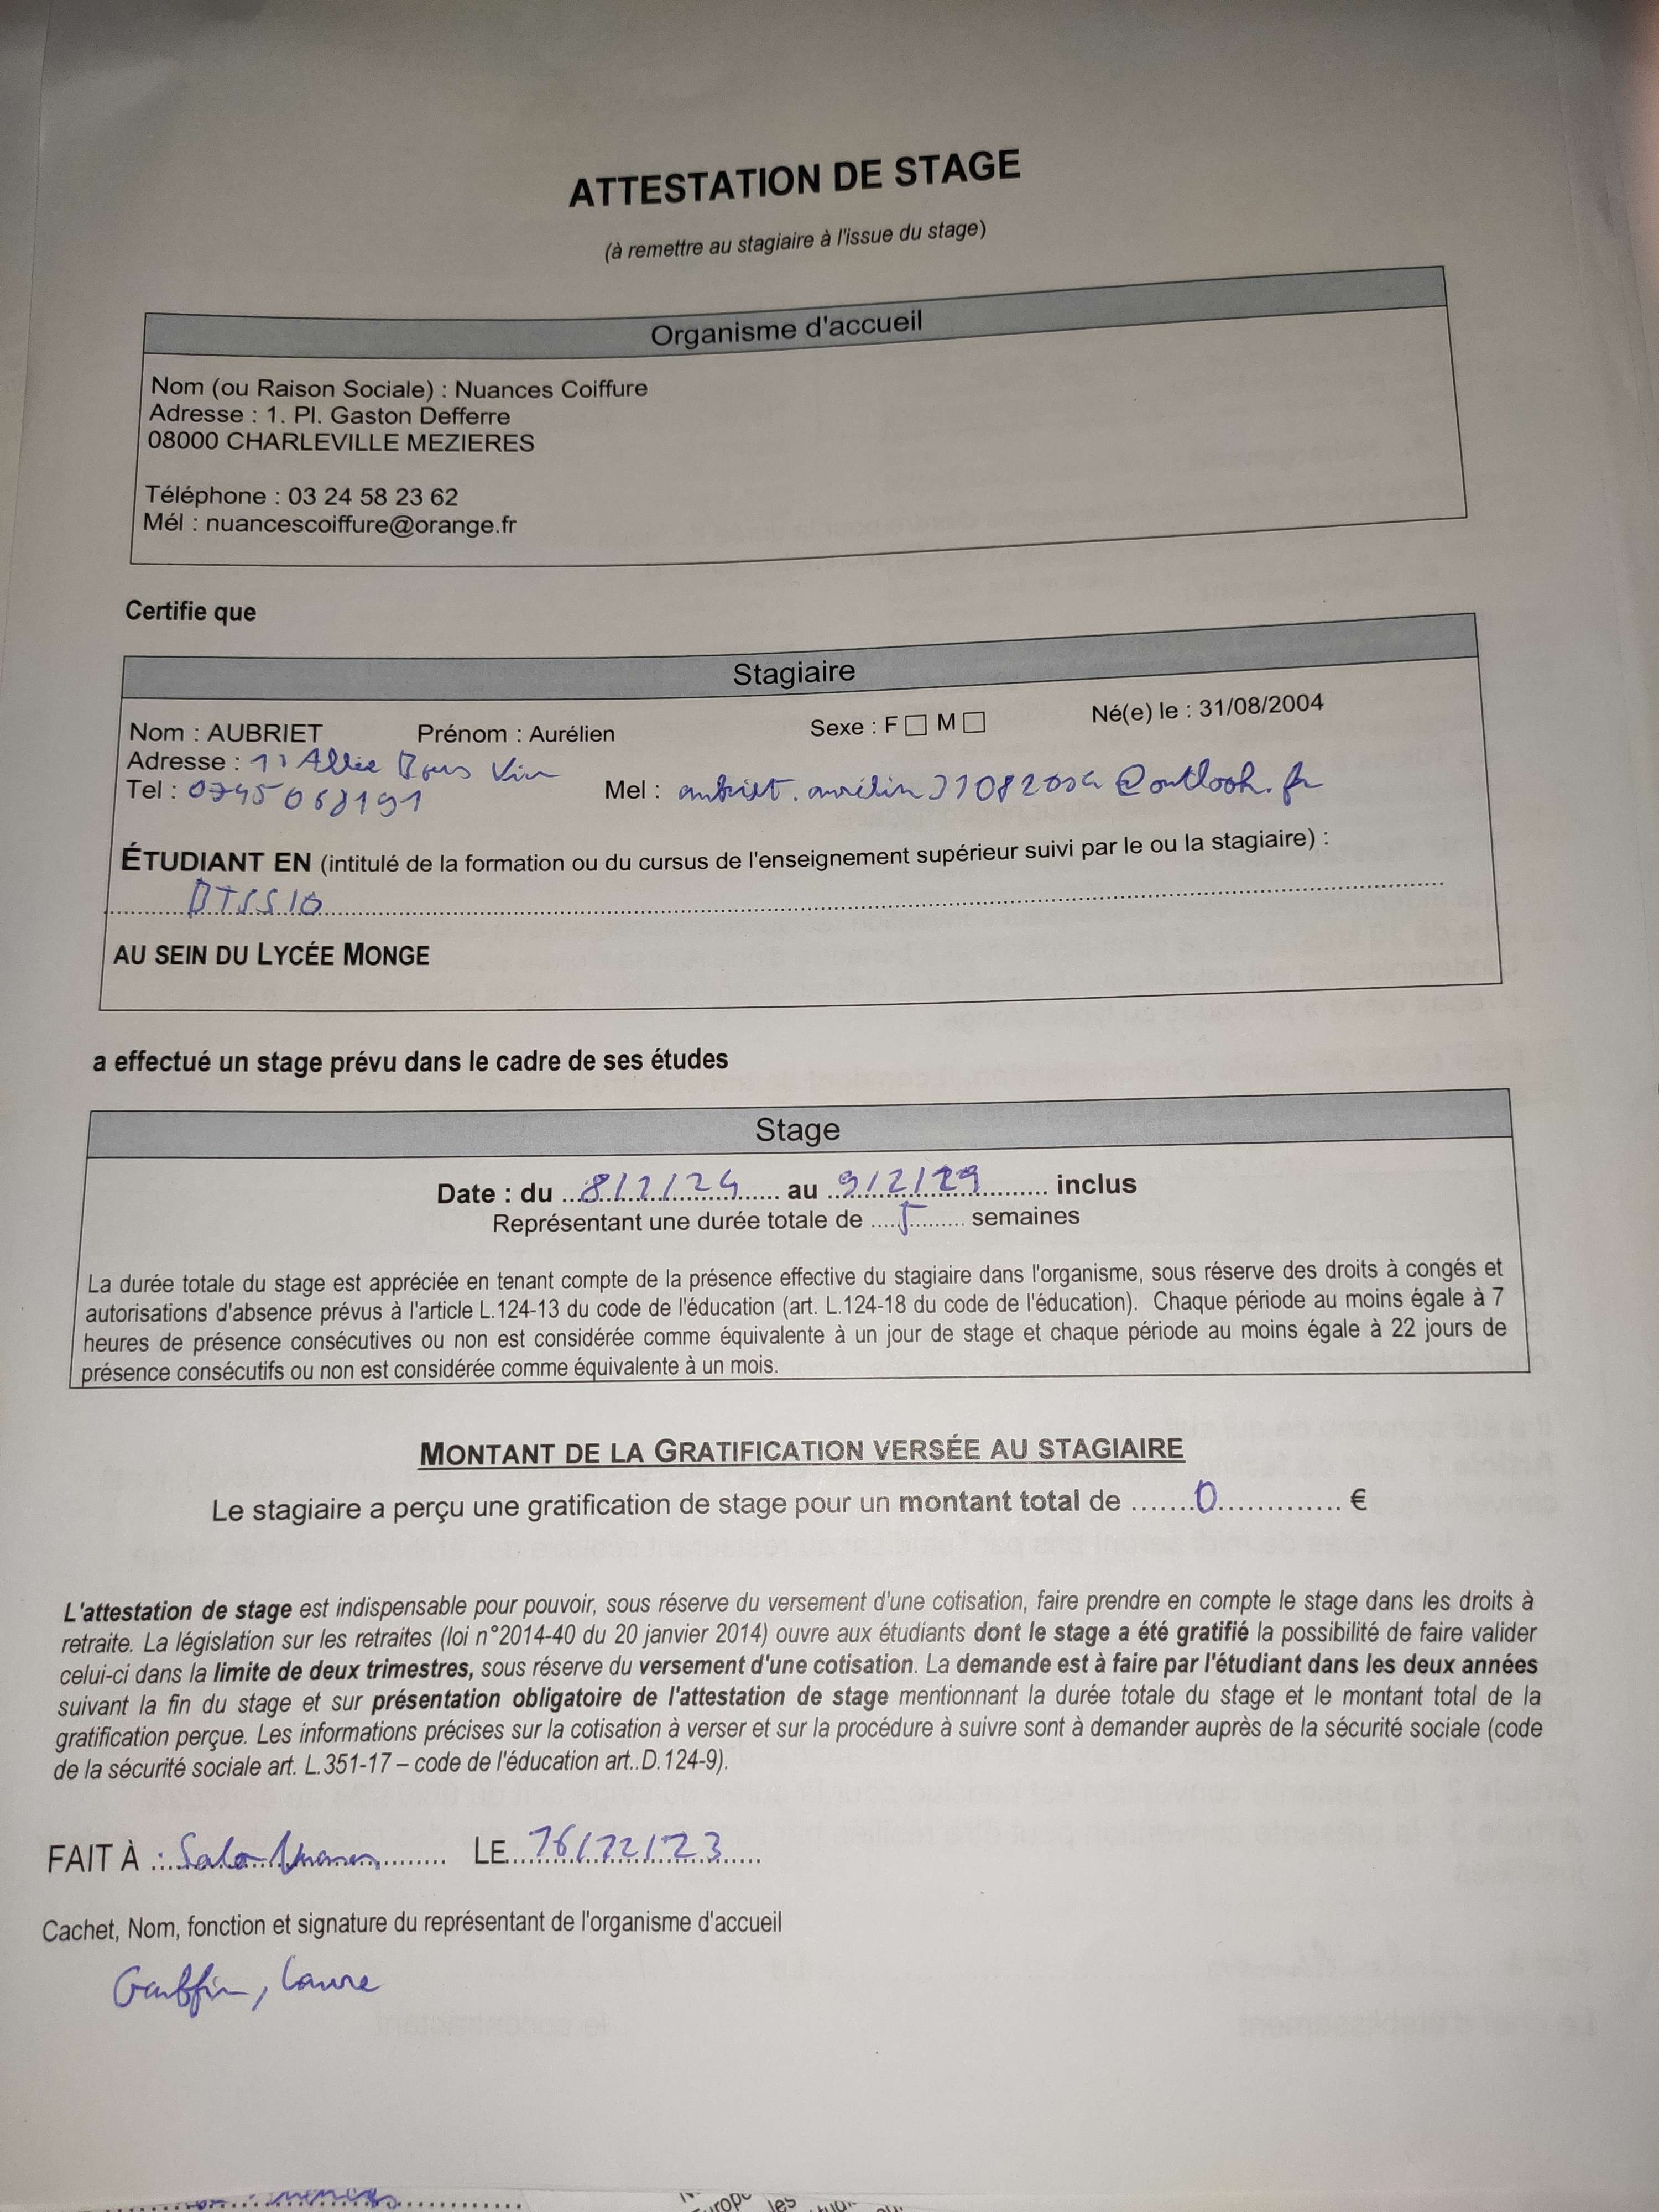 ATTESTATION DE STAGE
(à remettre au stagiaire à l'issue du stage)
Organisme d'accueil
Nom (ou Raison Sociale) : Nuances Coiffure
Adresse : 1. Pl. Gaston Defferre
08000 CHARLEVILLE MEZIERES
Téléphone : 03 24 58 23 62
Mél : nuancescoiffure@orange.fr
Certifie que
Stagiaire
Nom : AUBRIET Prénom : Aurélien Sexe : F □ M □ Né(e) le : 31/08/2004
Adresse : Allée
Tel : Mel :
ÉTUDIANT EN (intitulé de la formation ou du cursus de l'enseignement supérieur suivi par le ou la stagiaire) :
BTS SIO
AU SEIN DU LYCÉE MONGE
a effectué un stage prévu dans le cadre de ses études
Stage
Date : du 8/1/24 au 9/2/24 inclus
Représentant une durée totale de 5 semaines
La durée totale du stage est appréciée en tenant compte de la présence effective du stagiaire dans l'organisme, sous réserve des droits à congés et
autorisations d'absence prévus à l'article L.124-13 du code de l'éducation (art. L.124-18 du code de l'éducation). Chaque période au moins égale à 7
heures de présence consécutives ou non est considérée comme équivalente à un jour de stage et chaque période au moins égale à 22 jours de
présence consécutifs ou non est considérée comme équivalente à un mois.
MONTANT DE LA GRATIFICATION VERSÉE AU STAGIAIRE
Le stagiaire a perçu une gratification de stage pour un montant total de .......0............. €
L'attestation de stage est indispensable pour pouvoir, sous réserve du versement d'une cotisation, faire prendre en compte le stage dans les droits à
retraite. La législation sur les retraites (loi n°2014-40 du 20 janvier 2014) ouvre aux étudiants dont le stage a été gratifié la possibilité de faire valider
celui-ci dans la limite de deux trimestres, sous réserve du versement d'une cotisation. La demande est à faire par l'étudiant dans les deux années
suivant la fin du stage et sur présentation obligatoire de l'attestation de stage mentionnant la durée totale du stage et le montant total de la
gratification perçue. Les informations précises sur la cotisation à verser et sur la procédure à suivre sont à demander auprès de la sécurité sociale (code
de la sécurité sociale art. L.351-17 – code de l'éducation art..D.124-9).
FAIT À : Salon LE 16/12/23
Cachet, Nom, fonction et signature du représentant de l'organisme d'accueil
Laure